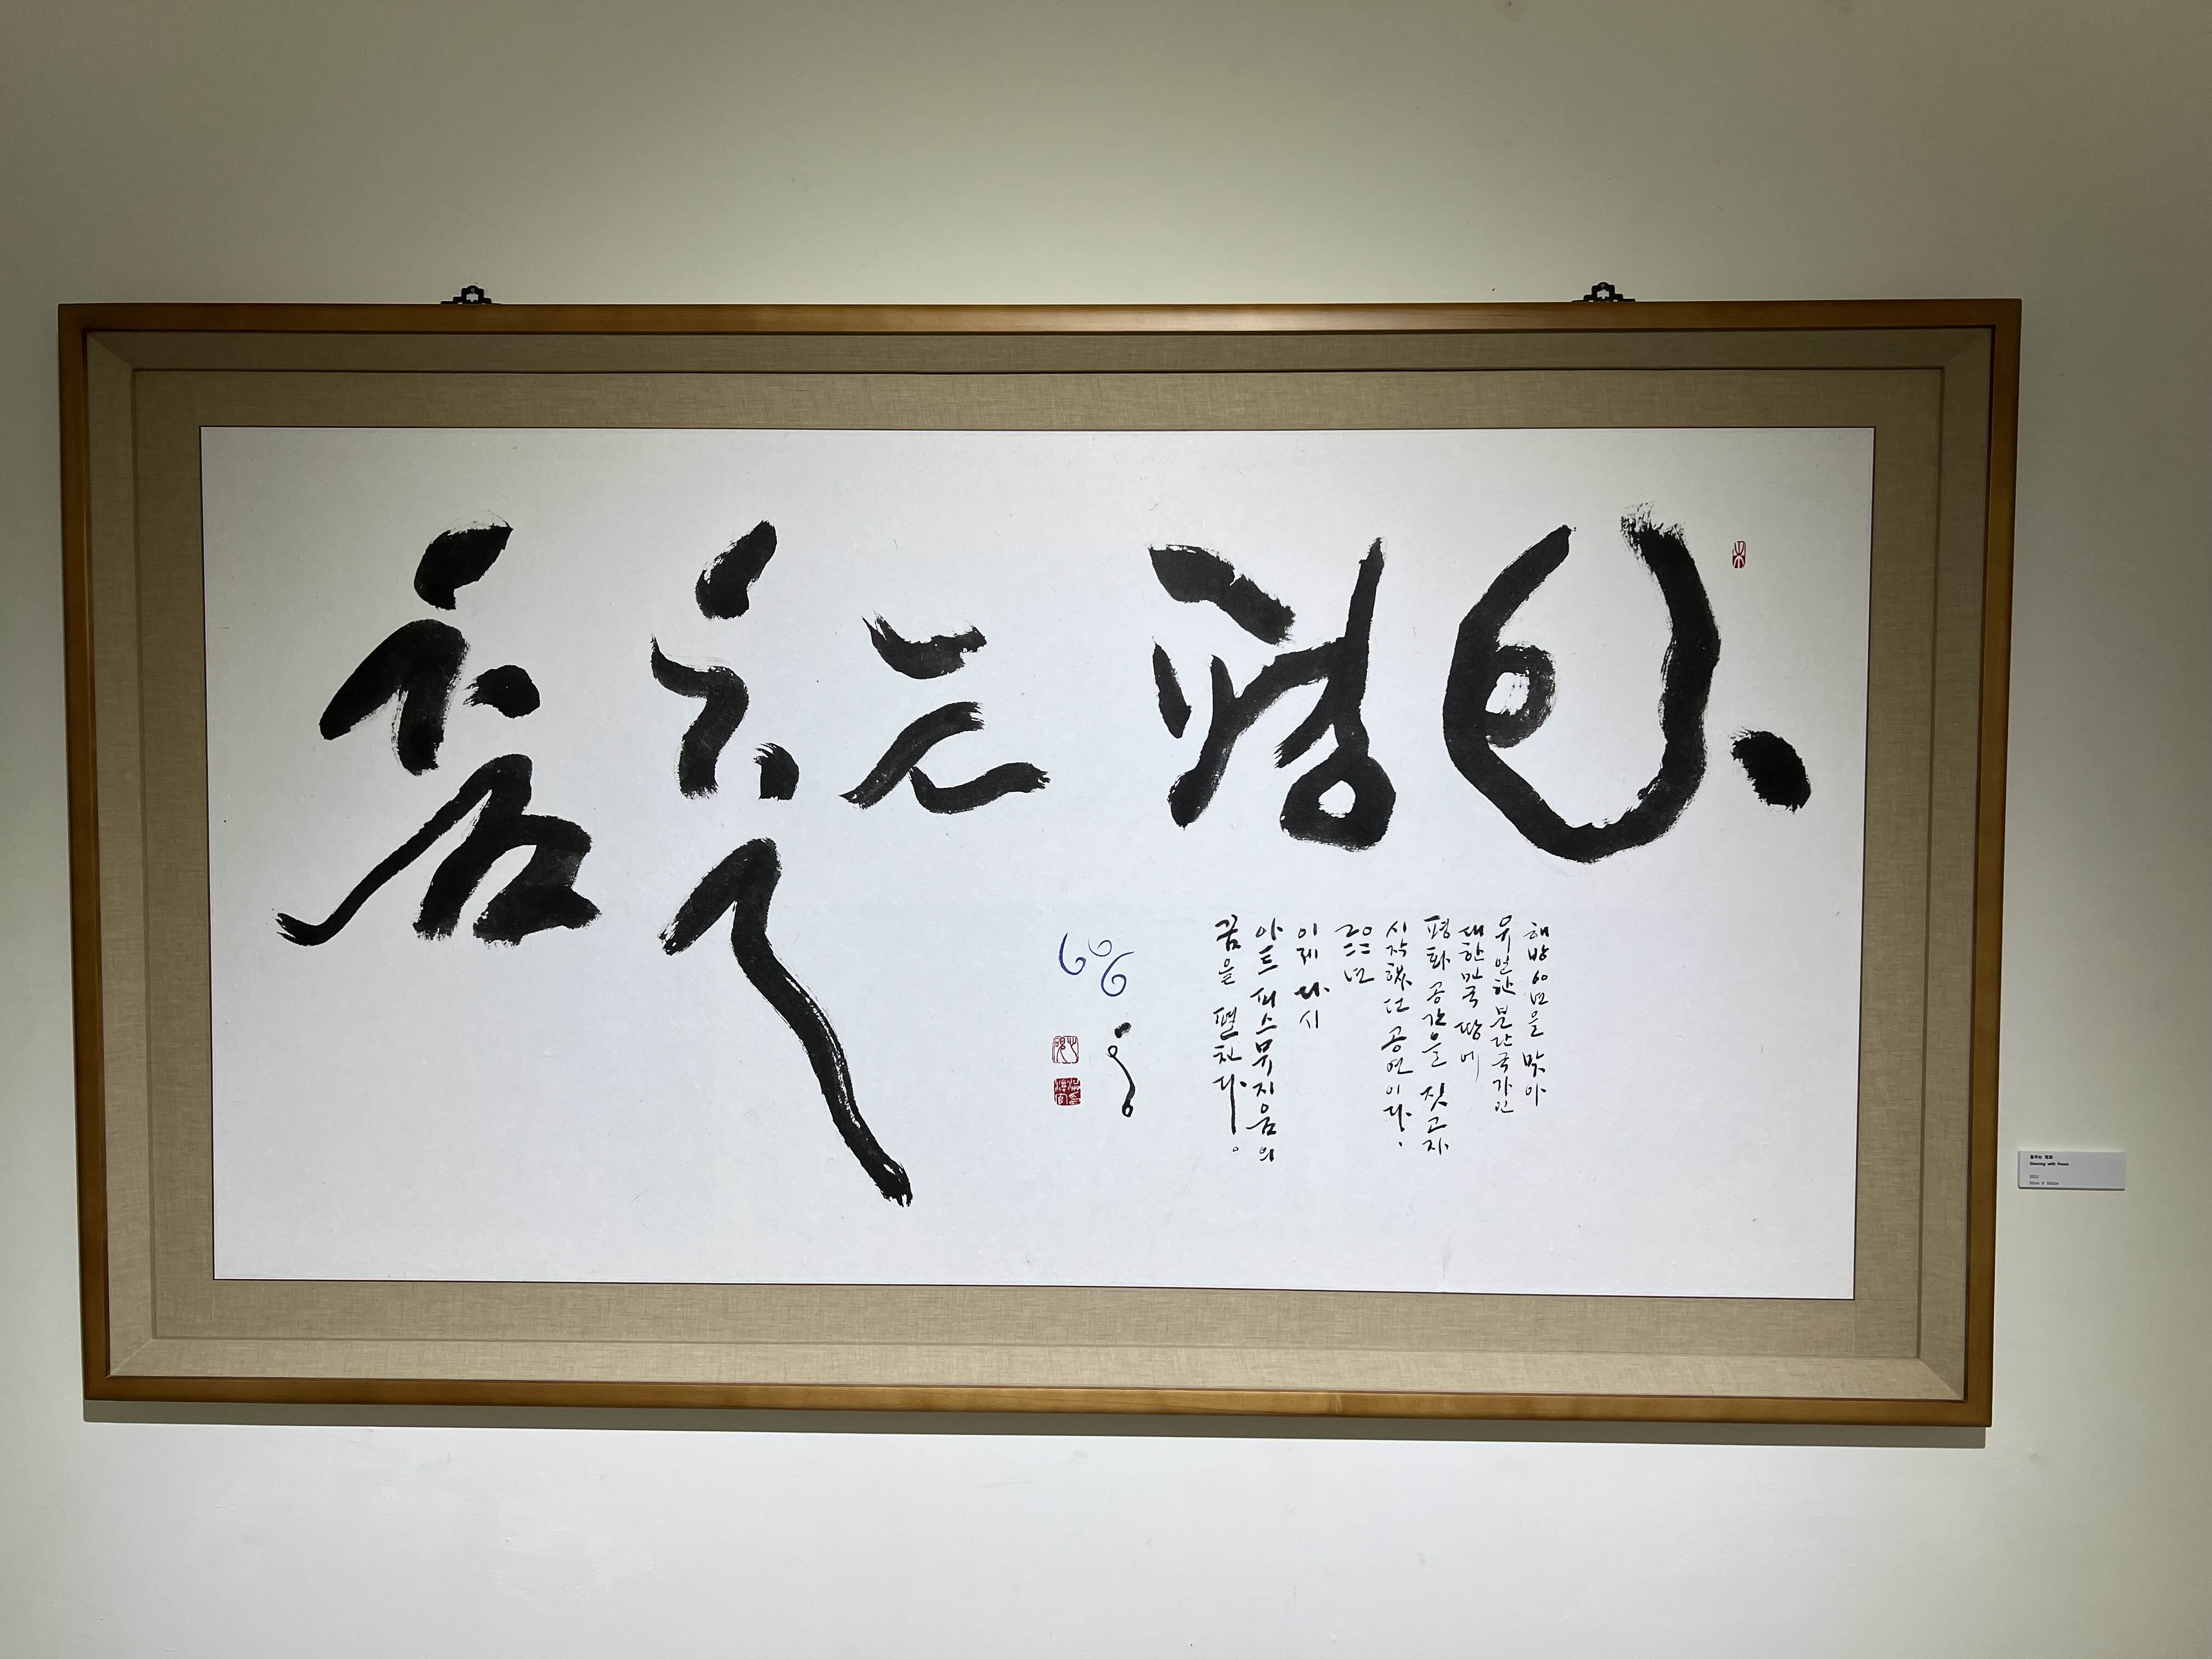 춤추는 평화
해방60년을 맞아
유일한 분단국가인
대한민국 땅에
평화 공간을 짓고자
시작했던 공연이다.
2022년
이제 다시
아트피스뮤지움의
꿈을 펼친다.
춤추는 평화
Dancing with Peace